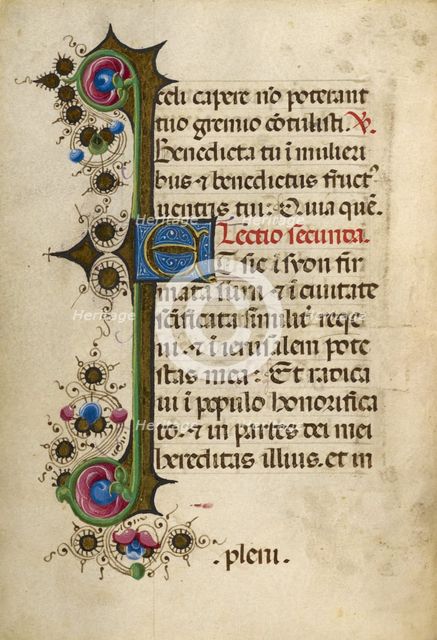 celi capere nõ poterant
tuo gremio cõtulisti. ℣.
Benedicta tu ĩ mulieri
bus ⁊ benedictus fruct᾽
uentris tui: Quia quẽ.
Lectio secunda.
ET sic ĩ syon fir
mata sum ⁊ ĩ ciuitate
scĩficata similit̃ requie
ui. ⁊ ĩ ierusalem pote
stas mea: Et radica
ui ĩ populo honorifica
to. ⁊ in partes dei mei
hereditas illius. et in
.pleni.
Heritage Images